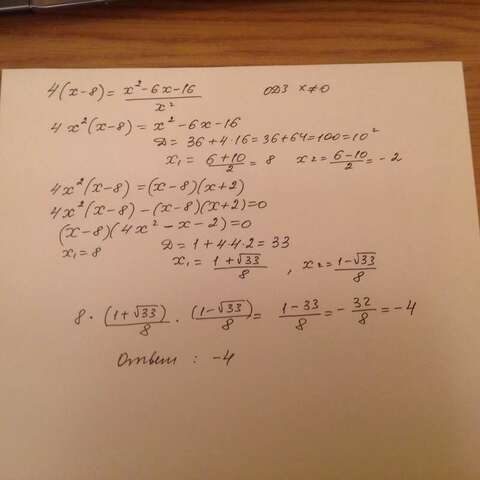 4(x-8) = (x²-6x-16)/x² ОДЗ x≠0
4x²(x-8) = x²-6x-16
Д = 36+4·16 = 36+64 = 100 = 10²
x₁ = (6+10)/2 = 8 x₂ = (6-10)/2 = -2
4x²(x-8) = (x-8)(x+2)
4x²(x-8) - (x-8)(x+2) = 0
(x-8)(4x²-x-2) = 0
x₁ = 8 Д = 1+4·4·2 = 33
x₁ = (1+√33)/8 , x₂ = (1-√33)/8
8 · (1+√33)/8 · (1-√33)/8 = (1-33)/8 = -32/8 = -4
Ответ : -4